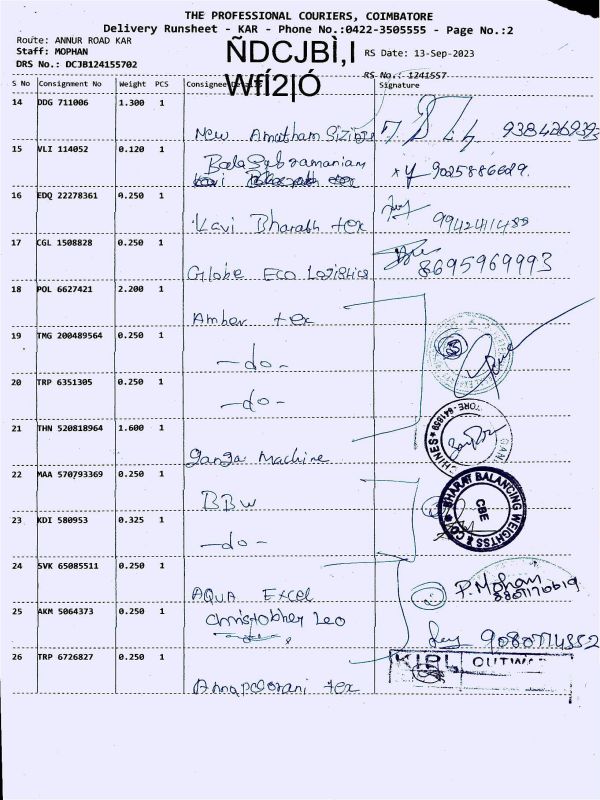 THE PROFESSIONAL COURIERS, COIMBATORE
Delivery Runsheet - KAR - Phone No.:0422-3505555 - Page No.:2
Route: ANNUR ROAD KAR
Staff: MOPHAN
DRS No.: DCJB124155702
ÑDCJBÌ,I
WfÍ2|Ó
RS Date: 13-Sep-2023
RS No.: 1241557
S No Consignment No Weight PCS Consignee Details Signature
14 DDG 711006 1.300 1
New Amutham 9384269393
15 VLI 114052 0.120 1
Bala Subramaniam
9025886629.
16 EDQ 22278361 0.250 1
Kavi Bharath tex 9942411488
17 CGL 1508828 0.250 1
Globe Eco Logistics 8695969993
18 POL 6627421 2.200 1
Amber tex
19 TMG 200489564 0.250 1
-do-
20 TRP 6351305 0.250 1
-do-
21 THN 520818964 1.600 1
ganga Machine
22 MAA 570793369 0.250 1
BBW
BHARAT BALANCING WEIGHTSS & CO
CBE
23 KDI 580953 0.325 1
-do-
24 SVK 65085511 0.250 1
AQUA Excel
P. Mohan
25 AKM 5064373 0.250 1
Christobher Leo
26 TRP 6726827 0.250 1
Annapoorani tex